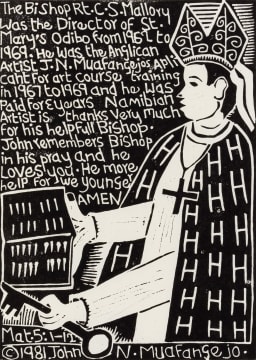 The Bishop Rt. C. S. Mallory
Was the Director of St.
Mary's Odibo from 1962 to
1969. He was the Anglican
Artist J. N. Muafangejo Apli
cant For art course Training
in 1967 to 1969 and he was
Paid for 2 years Namibian
Artist is Thanks Very much
for his helpfull Bishop.
John remembers Bishop
in his pray and he
Loves you. He more
help For we younger
AMEN
H H H H H H H H H H H H
Mat:5:1-12
© 1981 John N. Muafangejo.